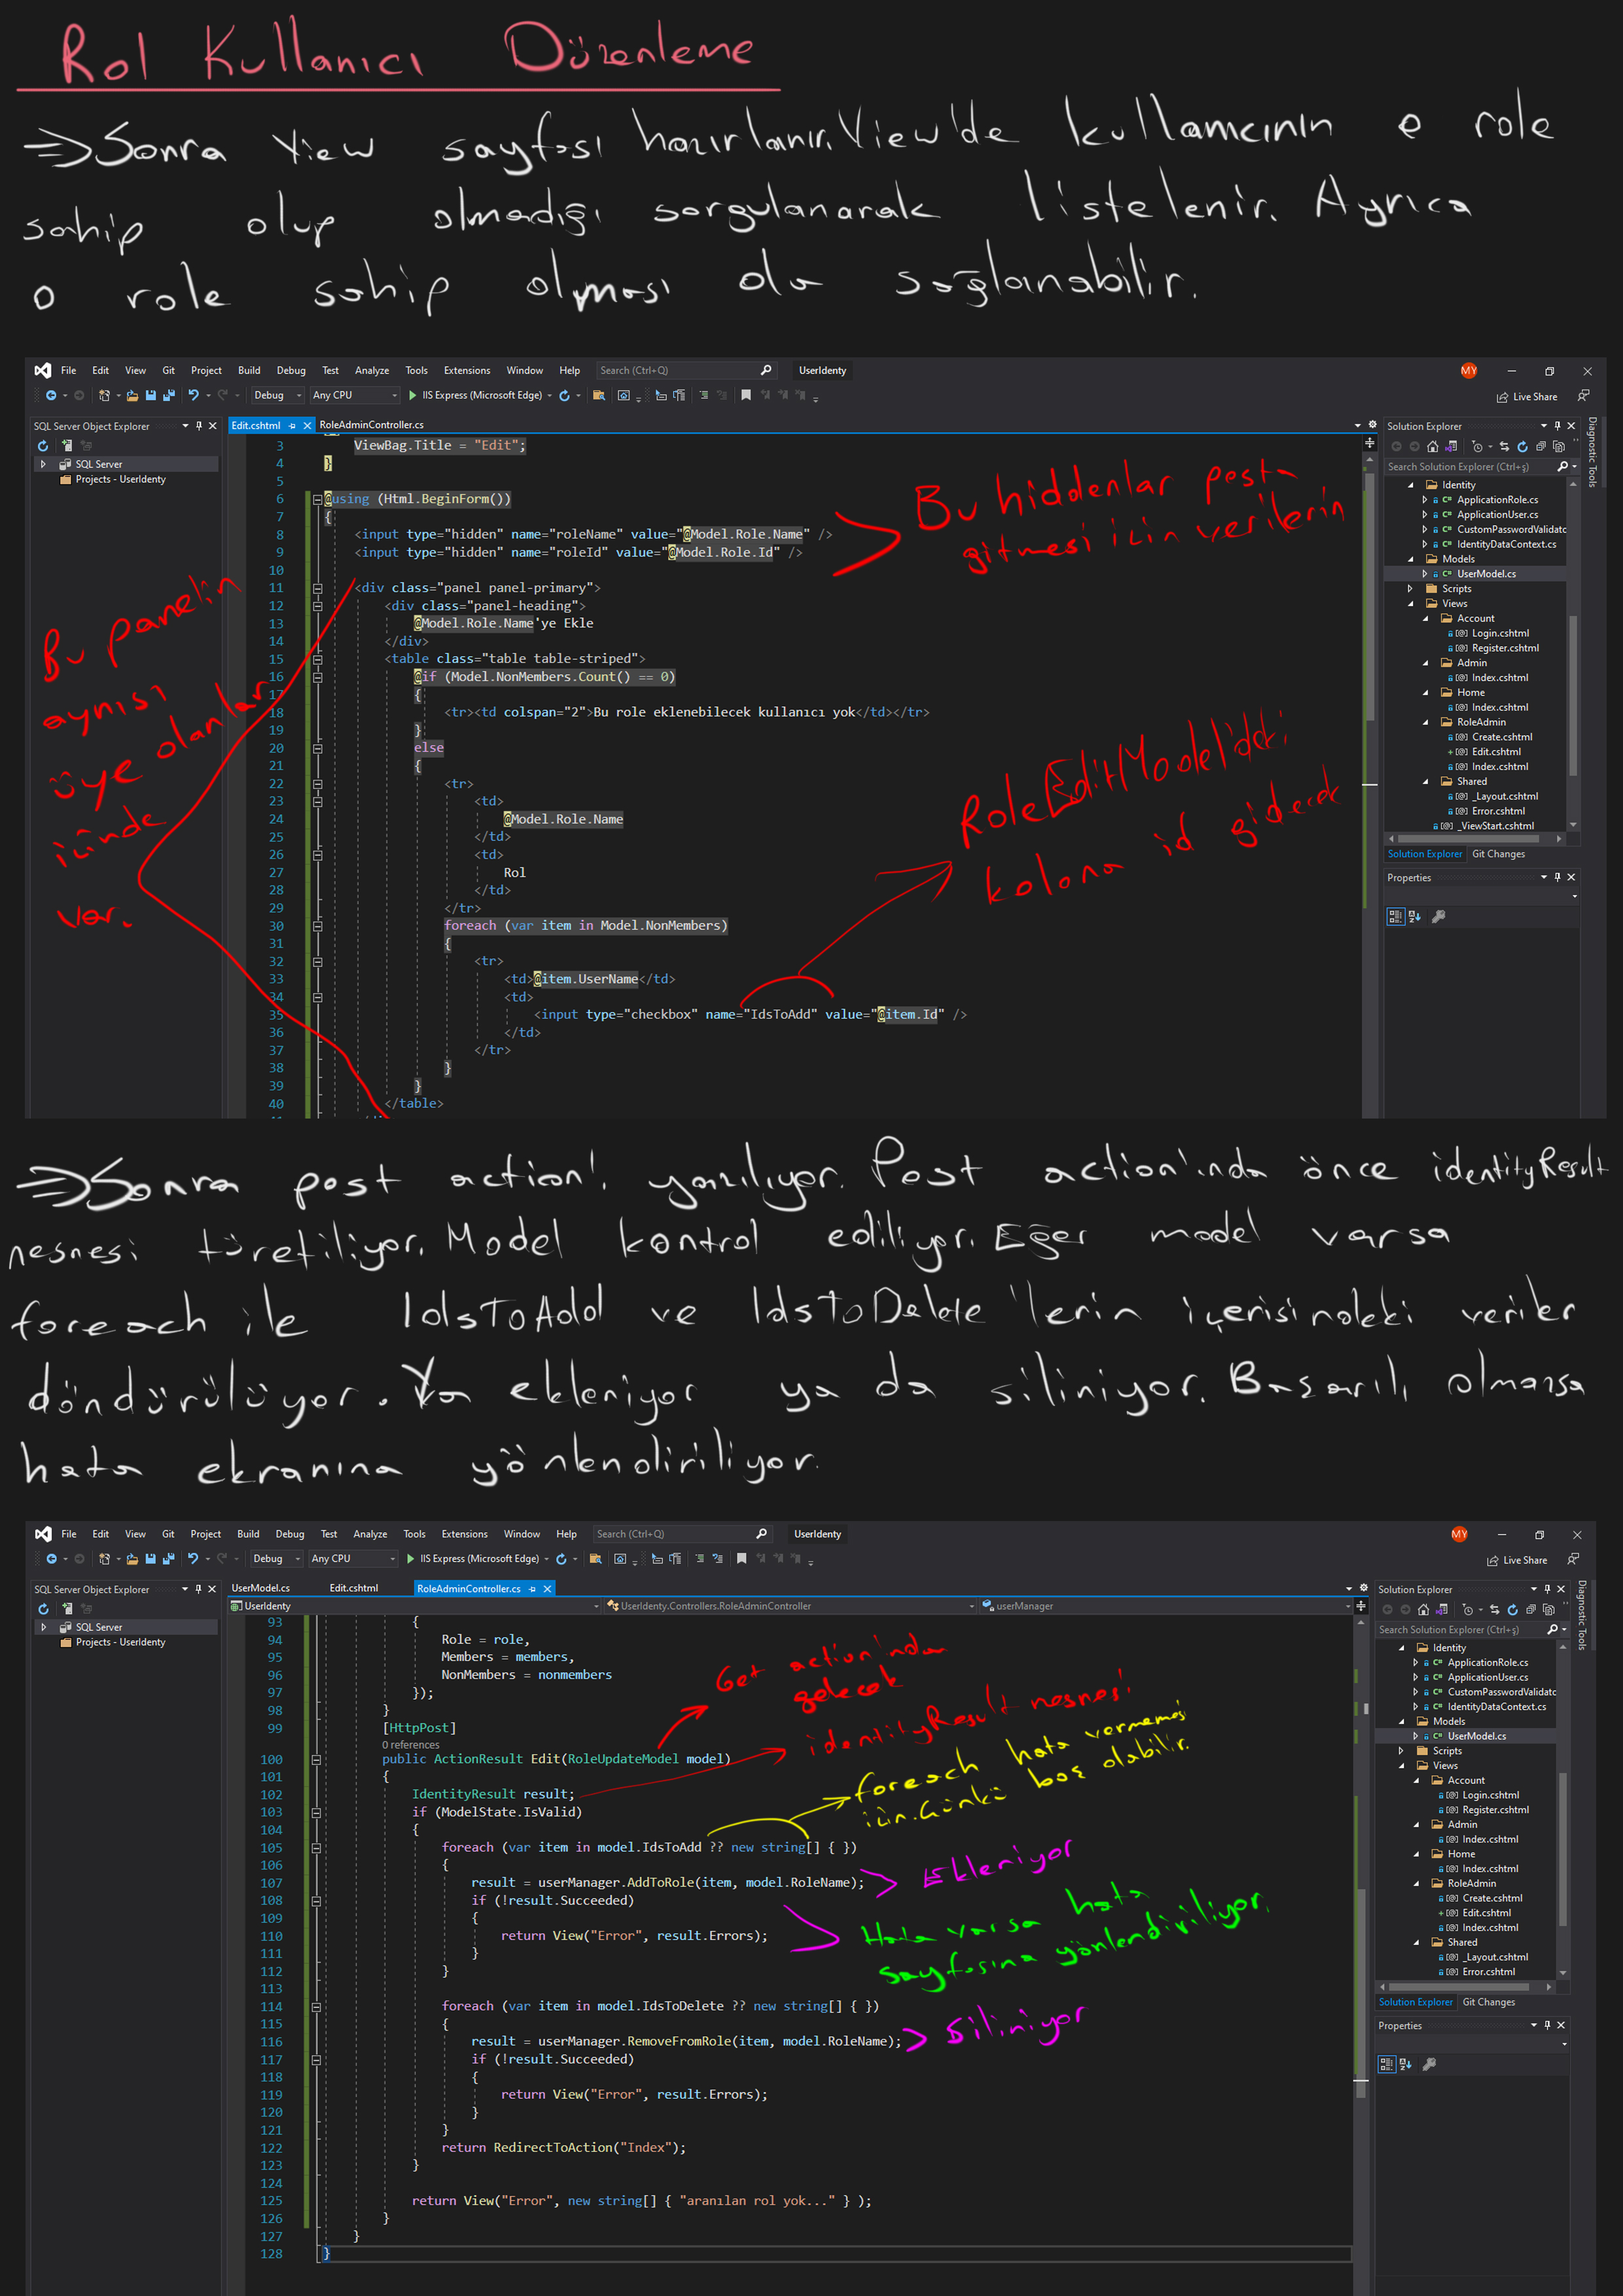 Rol Kullanıcı Düzenleme
=> Sonra View sayfası hazırlanır. View'de kullanıcının o role
sahip olup olmadığı sorgulanarak listelenir. Ayrıca
o role sahip olması da sağlanabilir.
File Edit View Git Project Build Debug Test Analyze Tools Extensions Window Help Search (Ctrl+Q) UserIdenty MY
Debug Any CPU IIS Express (Microsoft Edge) Live Share
SQL Server Object Explorer
SQL Server
Projects - UserIdenty
Edit.cshtml RoleAdminController.cs
3 ViewBag.Title = "Edit";
4 }
5
6 @using (Html.BeginForm())
7 {
8 <input type="hidden" name="roleName" value="@Model.Role.Name" />
9 <input type="hidden" name="roleId" value="@Model.Role.Id" />
10
11 <div class="panel panel-primary">
12 <div class="panel-heading">
13 @Model.Role.Name'ye Ekle
14 </div>
15 <table class="table table-striped">
16 @if (Model.NonMembers.Count() == 0)
17 {
18 <tr><td colspan="2">Bu role eklenebilecek kullanıcı yok</td></tr>
19 }
20 else
21 {
22 <tr>
23 <td>
24 @Model.Role.Name
25 </td>
26 <td>
27 Rol
28 </td>
29 </tr>
30 foreach (var item in Model.NonMembers)
31 {
32 <tr>
33 <td>@item.UserName</td>
34 <td>
35 <input type="checkbox" name="IdsToAdd" value="@item.Id" />
36 </td>
37 </tr>
38 }
39 }
40 </table>
Bu hiddenlar post
gitmesi için verilerin
Bu panelin
aynısı
üye olanlar
içinde
var.
RoleEditModel'deki
kolona id gidecek
Solution Explorer
Search Solution Explorer (Ctrl+ş)
Identity
ApplicationRole.cs
ApplicationUser.cs
CustomPasswordValidatc
IdentityDataContext.cs
Models
UserModel.cs
Scripts
Views
Account
Login.cshtml
Register.cshtml
Admin
Index.cshtml
Home
Index.cshtml
RoleAdmin
Create.cshtml
Edit.cshtml
Index.cshtml
Shared
_Layout.cshtml
Error.cshtml
_ViewStart.cshtml
Solution Explorer Git Changes
Properties
Diagnostic Tools
=> Sonra post action'ı yazılıyor. Post action'ında önce identityResult
nesnesi türetiliyor. Model kontrol ediliyor. Eğer model varsa
foreach ile IdsToAdd ve IdsToDelete 'lerin içerisindeki veriler
döndürülüyor. Ya ekleniyor ya da siliniyor. Başarılı olmazsa
hata ekranına yönlendiriliyor.
File Edit View Git Project Build Debug Test Analyze Tools Extensions Window Help Search (Ctrl+Q) UserIdenty MY
Debug Any CPU IIS Express (Microsoft Edge) Live Share
SQL Server Object Explorer
SQL Server
Projects - UserIdenty
UserModel.cs Edit.cshtml RoleAdminController.cs
UserIdenty UserIdenty.Controllers.RoleAdminController userManager
93 {
94 Role = role,
95 Members = members,
96 NonMembers = nonmembers
97 });
98 }
99 [HttpPost]
0 references
100 public ActionResult Edit(RoleUpdateModel model)
101 {
102 IdentityResult result;
103 if (ModelState.IsValid)
104 {
105 foreach (var item in model.IdsToAdd ?? new string[] { })
106 {
107 result = userManager.AddToRole(item, model.RoleName);
108 if (!result.Succeeded)
109 {
110 return View("Error", result.Errors);
111 }
112 }
113
114 foreach (var item in model.IdsToDelete ?? new string[] { })
115 {
116 result = userManager.RemoveFromRole(item, model.RoleName);
117 if (!result.Succeeded)
118 {
119 return View("Error", result.Errors);
120 }
121 }
122 return RedirectToAction("Index");
123 }
124
125 return View("Error", new string[] { "aranılan rol yok..." } );
126 }
127 }
128 }
Get action'ından
gelecek
identityResult nesnesi
foreach hata vermemesi
için. Çünkü boş olabilir.
Ekleniyor
Hata varsa hata
sayfasına yönlendiriliyor.
Siliniyor
Solution Explorer
Search Solution Explorer (Ctrl+ş)
Identity
ApplicationRole.cs
ApplicationUser.cs
CustomPasswordValidatc
IdentityDataContext.cs
Models
UserModel.cs
Scripts
Views
Account
Login.cshtml
Register.cshtml
Admin
Index.cshtml
Home
Index.cshtml
RoleAdmin
Create.cshtml
Edit.cshtml
Index.cshtml
Shared
_Layout.cshtml
Error.cshtml
Solution Explorer Git Changes
Properties
Diagnostic Tools